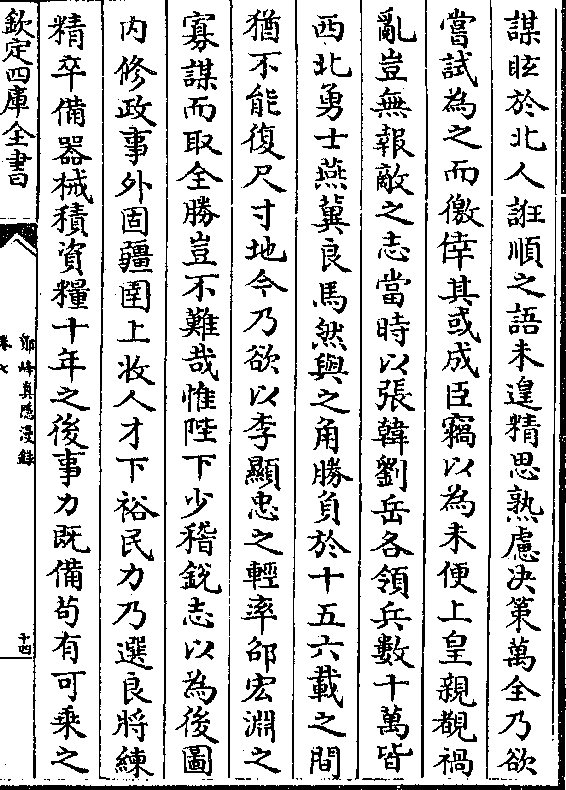 謀眩於北人誑順之語未遑精思熟慮决策萬全乃欲
嘗試為之而儌倖其或成臣竊以為未便上皇親覩禍
亂豈無報敵之志當時以張韓劉岳各領兵數十萬皆
西北勇士燕冀良馬然與之角勝負於十五六載之間
猶不能復尺寸地今乃欲以李顯忠之輕率邵宏淵之
寡謀而取全勝豈不難哉惟陛下少稽銳志以為後圖
内修政事外固疆圉上收人才下裕民力乃選良將練
精卒備器械積資糧十年之後事力既備苟有可乗之
欽定四庫全書
鄮峰真隱漫録
卷七
十四